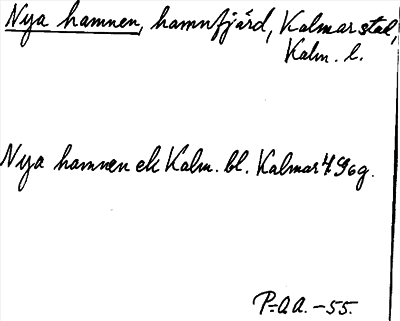 Nya hamnen, hamnfjärd, Kalmar stad,
Kalm. l.
Nya hamnen ek Kalm. bl. Kalmar 4 G6g.
P-AA. -55.